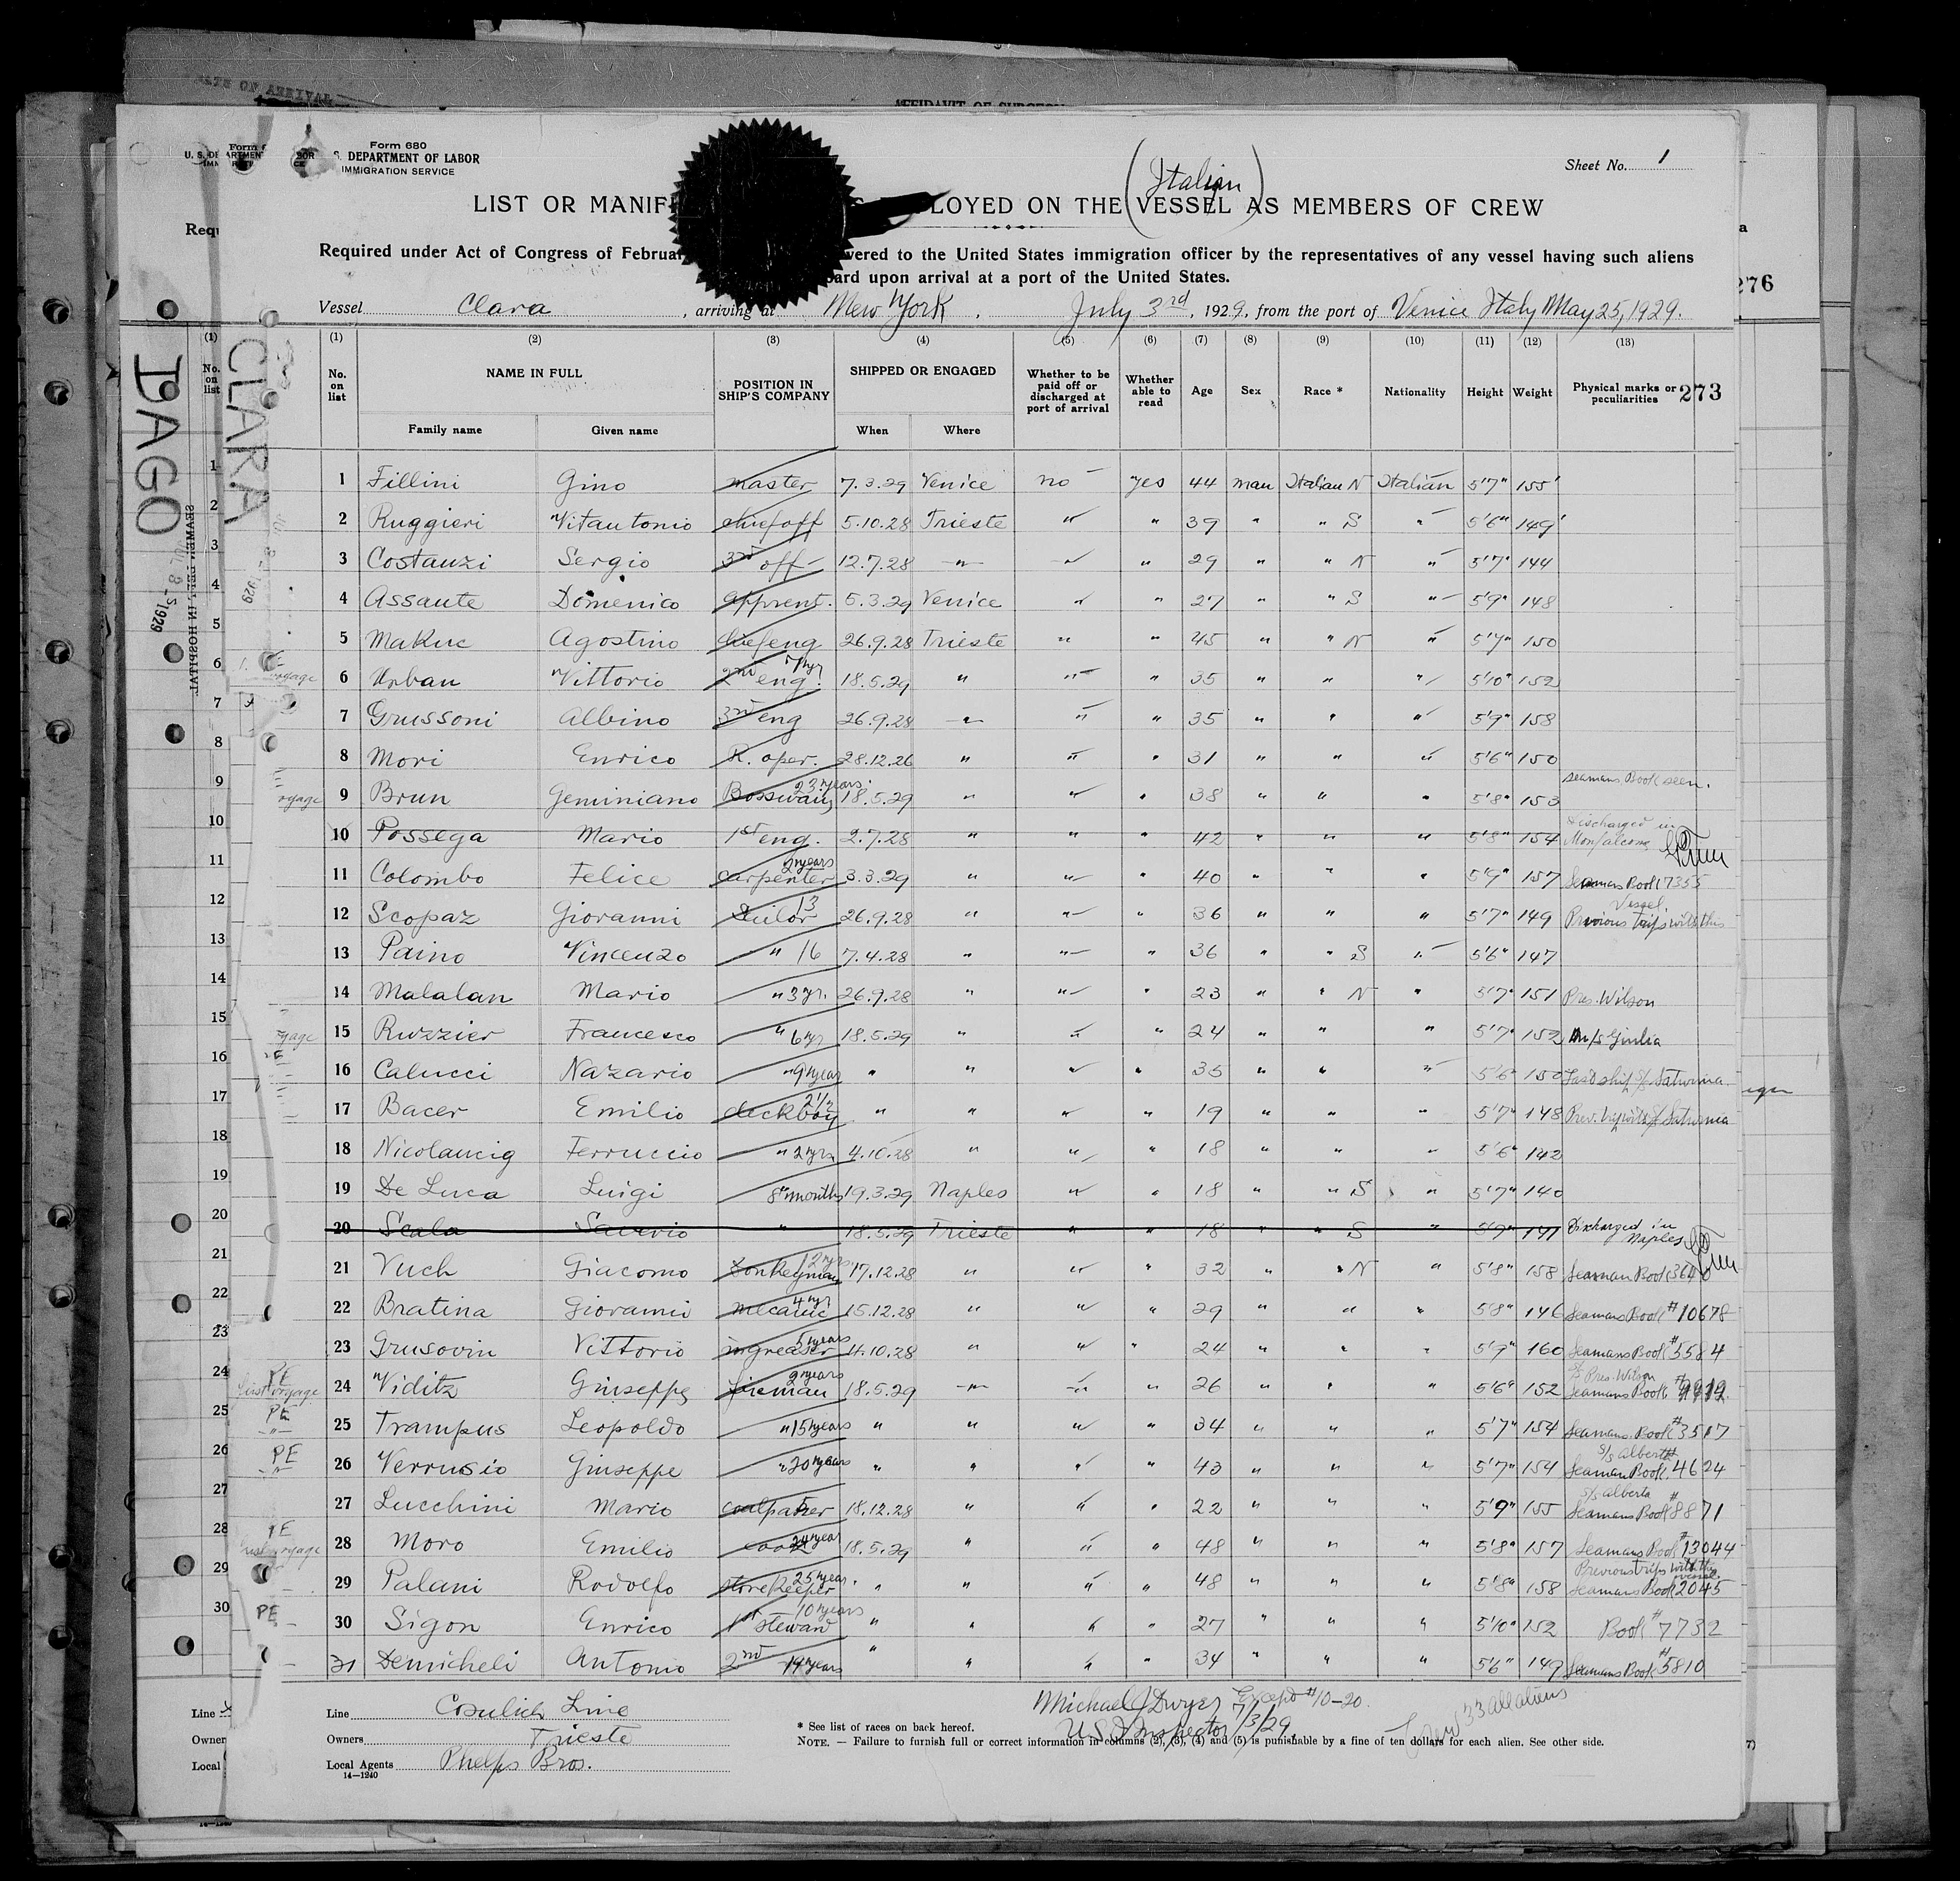 AFFIDAVIT OF SURGEON
Form 680
U. S. DEPARTMENT OF LABOR
IMMIGRATION SERVICE
Sheet No. 1
(Italian)
LIST OR MANIF LOYED ON THE VESSEL AS MEMBERS OF CREW
Required under Act of Congress of Februa vered to the United States immigration officer by the representatives of any vessel having such aliens
ard upon arrival at a port of the United States.
276
Vessel Clara, arriving at New York, July 3rd, 1929, from the port of Venice Italy May 25, 1929.
DAGO
CLARA
(1) (2) (3) (4) (5) (6) (7) (8) (9) (10) (11) (12) (13)
No. on list NAME IN FULL POSITION IN SHIP'S COMPANY SHIPPED OR ENGAGED Whether to be paid off or discharged at port of arrival Whether able to read Age Sex Race * Nationality Height Weight Physical marks or peculiarities 273
Family name Given name When Where
1 Fillini Gino master 7.3.29 Venice no yes 44 man Italian N Italian 5'7" 155
2 Ruggieri Vitautonio chief off 5.10.28 Trieste " " 39 " " S " 5'6" 149
3 Costanzi Sergio 3rd off 12.7.28 " " " 29 " " N " 5'7" 144
4 Assante Domenico apprent. 5.3.29 Venice " " 27 " " S " 5'9" 148
5 Makuc Agostino chief eng 26.9.28 Trieste " " 45 " " N " 5'7" 150
6 Urban Vittorio 2nd eng. 18.5.29 " " " 35 " " " 5'10" 152
7 Grussoni Albino 3rd eng 26.9.28 " " " 35 " " " 5'9" 158
8 Mori Enrico R. oper. 28.12.26 " " " 31 " " " 5'6" 150
9 Brun Geminiano Bosswain 23 years 18.5.29 " " " 38 " " " 5'8" 153 Seamans Book seen.
10 Possega Mario 1st eng. 2.7.28 " " " 42 " " " 5'8" 154 Discharged in Monfalcone
11 Colombo Felice carpenter 2 years 3.3.29 " " " 40 " " " 5'9" 157 Seamans Book 7355
12 Scopaz Giovanni Sailor 13 26.9.28 " " " 36 " " " 5'7" 149 Previous trips with this Vessel
13 Paino Vincenzo " 16 7.4.28 " " " 36 " " S " 5'6" 147
14 Malalan Mario " 3 yr. 26.9.28 " " " 23 " " N " 5'7" 151 Pres. Wilson
15 Ruzzier Francesco " 6 yr 18.5.29 " " " 24 " " " 5'7" 152 M/s Giulia
16 Calucci Nazario " 9 year " " " " 35 " " " 5'6" 150 Last ship S/s Saturnia
17 Bacer Emilio deckboy 2 1/2 " " " " 19 " " " 5'7" 148 Prev. trip with S/s Saturnia
18 Nicolaucig Ferruccio " 2 yrs 4.10.28 " " " 18 " " " 5'6" 142
19 De Luca Luigi 8 months 19.3.29 Naples " " 18 " " S " 5'7" 140
20 Scala Saverio " 18.5.29 Trieste " " 18 " " S " 5'7" 141 Discharged in Naples
21 Vuch Giacomo Donkeyman 12 yrs 17.12.28 " " " 32 " " N " 5'8" 158 Seaman Book 3640
22 Bratina Giovanni mecanic 4 yr 15.12.28 " " " 29 " " " 5'8" 146 Seamans Book #10678
23 Grusovin Vittorio greaser 5 years 4.10.28 " " " 24 " " " 5'9" 160 Seamans Book #5584
24 Viditz Giuseppe fireman 2 years 18.5.29 " " " 26 " " " 5'6" 152 S/s Pres. Wilson Seamans Book
25 Trampus Leopoldo " 15 years " " " " 34 " " " 5'7" 154 Seamans Book #3517
26 Verrusio Giuseppe " 20 years " " " " 43 " " " 5'7" 154 S/s Alberta Seaman Book 4624
27 Lucchini Mario coalpasser 18.12.28 " " " 22 " " " 5'9" 155 S/s Alberta Seamans Book #8871
28 Moro Emilio cook year 18.5.29 " " " 48 " " " 5'8" 157 Seamans Book #13044
29 Palani Rodolfo storekeeper 25 year " " " " 48 " " " 5'8" 158 Previous trips with this vessel Seamans Book 2045
30 Sigon Enrico 1st steward 10 years " " " " 27 " " " 5'10" 152 Book #7732
31 Demicheli Antonio 2nd 14 years " " " " 34 " " " 5'6" 149 Seamans Book #5810
Line Cosulich Line
Owners Trieste
Local Agents Phelps Bros.
14—1240
Michael J Dwyer Except #10-20.
US Inspector 7/3/29
Crew 33 all aliens
* See list of races on back hereof.
NOTE. — Failure to furnish full or correct information in columns (2), (3), (4) and (5) is punishable by a fine of ten dollars for each alien. See other side.